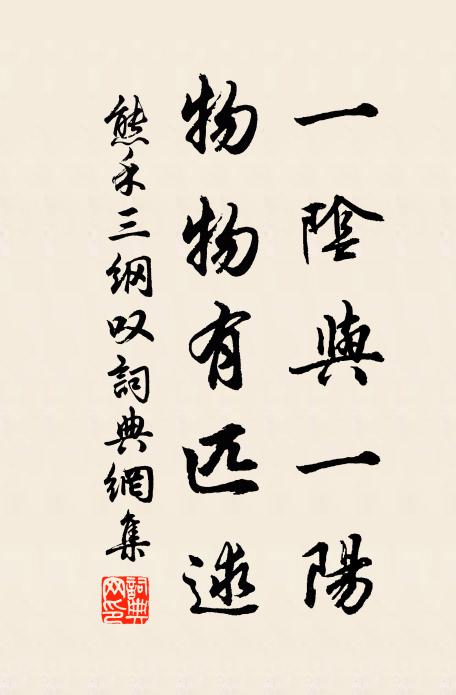 一陰與一陽
物物有匹逑
熊禾三綱叹詞典網集
詞典網印